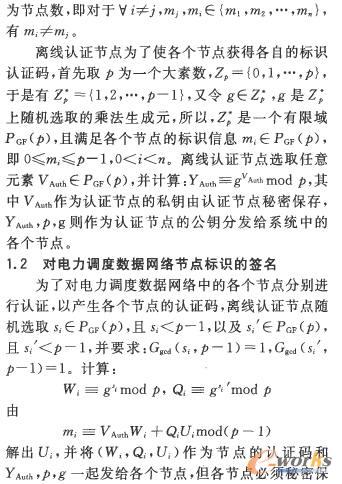 为节点数,即对于∀ i≠j,mⱼ,mᵢ∈{m₁,m₂,…,mₙ},
有 mᵢ≠mⱼ。
离线认证节点为了使各个节点获得各自的标识
认证码,首先取 p 为一个大素数,Zₚ={0,1,…,p},
于是有 Zₚ*={1,2,…,p-1},又令 g∈Zₚ*,g 是 Zₚ*
上随机选取的乘法生成元,所以,Zₚ*是一个有限域
P_GF(p),且满足各个节点的标识信息 mᵢ∈P_GF(p),
即 0≤mᵢ≤p-1,0<i<n。离线认证节点选取任意
元素 V_Auth∈P_GF(p),并计算:Y_Auth≡g^V_Auth mod p,其
中 V_Auth作为认证节点的私钥由认证节点秘密保存,
Y_Auth,p,g 则作为认证节点的公钥分发给系统中的
各个节点。
1.2 对电力调度数据网络节点标识的签名
为了对电力调度数据网络中的各个节点分别进
行认证,以产生各个节点的认证码,离线认证节点随
机选取 sᵢ∈P_GF(p),且 sᵢ<p-1,以及 sᵢ′∈P_GF(p),
且 sᵢ′<p-1,并要求:G_gcd(sᵢ,p-1)=1,G_gcd(sᵢ′,
p-1)=1。计算:
Wᵢ≡g^sᵢ mod p, Qᵢ≡g^sᵢ′ mod p
由
mᵢ≡V_Auth Wᵢ+QᵢUᵢ mod(p-1)
解出 Uᵢ,并将(Wᵢ,Qᵢ,Uᵢ)作为节点的认证码和
Y_Auth,p,g 一起发给各个节点,但各节点必须秘密保
e-works